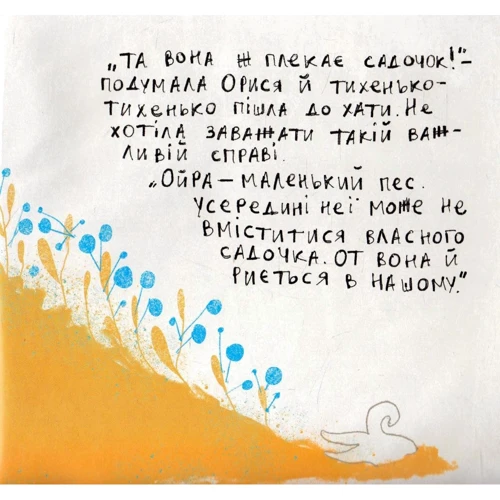 „ТА ВОНА Ж ПЛЕКАЄ САДОЧОК!“–
ПОДУМАЛА ОРИСЯ Й ТИХЕНЬКО-
ТИХЕНЬКО ПІШЛА ДО ХАТИ. НЕ
ХОТІЛА ЗАВАЖАТИ ТАКІЙ ВАЖ-
ЛИВІЙ СПРАВІ.
„ОЙРА – МАЛЕНЬКИЙ ПЕС.
УСЕРЕДИНІ НЕЇ МОЖЕ НЕ
ВМІСТИТИСЯ ВЛАСНОГО
САДОЧКА. ОТ ВОНА Й
РИЄТЬСЯ В НАШОМУ.“